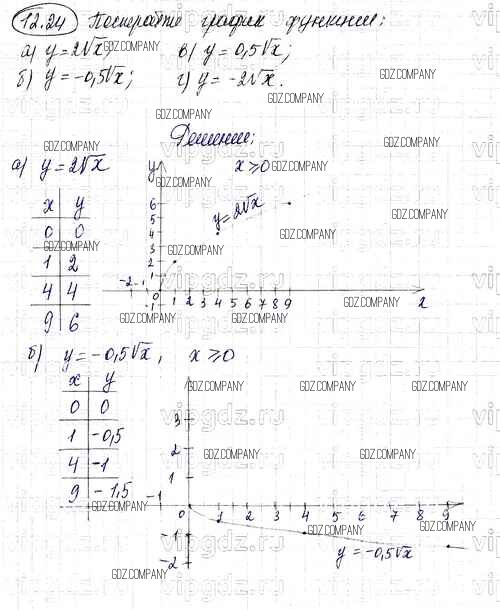 12.24 Постройте график функции:
а) y = 2√x; в) y = 0,5√x;
б) y = -0,5√x; г) y = -2√x.
Решение:
а) y = 2√x x ≥ 0
x y
0 0
1 2
4 4
9 6
y
6
5
4
3
2
1
y = 2√x
-2 -1 0 1 2 3 4 5 6 7 8 9 x
-1
б) y = -0,5√x, x ≥ 0
x y
0 0
1 -0,5
4 -1
9 -1,5
3
2
1
-1 0 1 2 3 4 5 6 7 8 9
-1
-2
y = -0,5√x
GDZ.COMPANY
vipgdz.ru